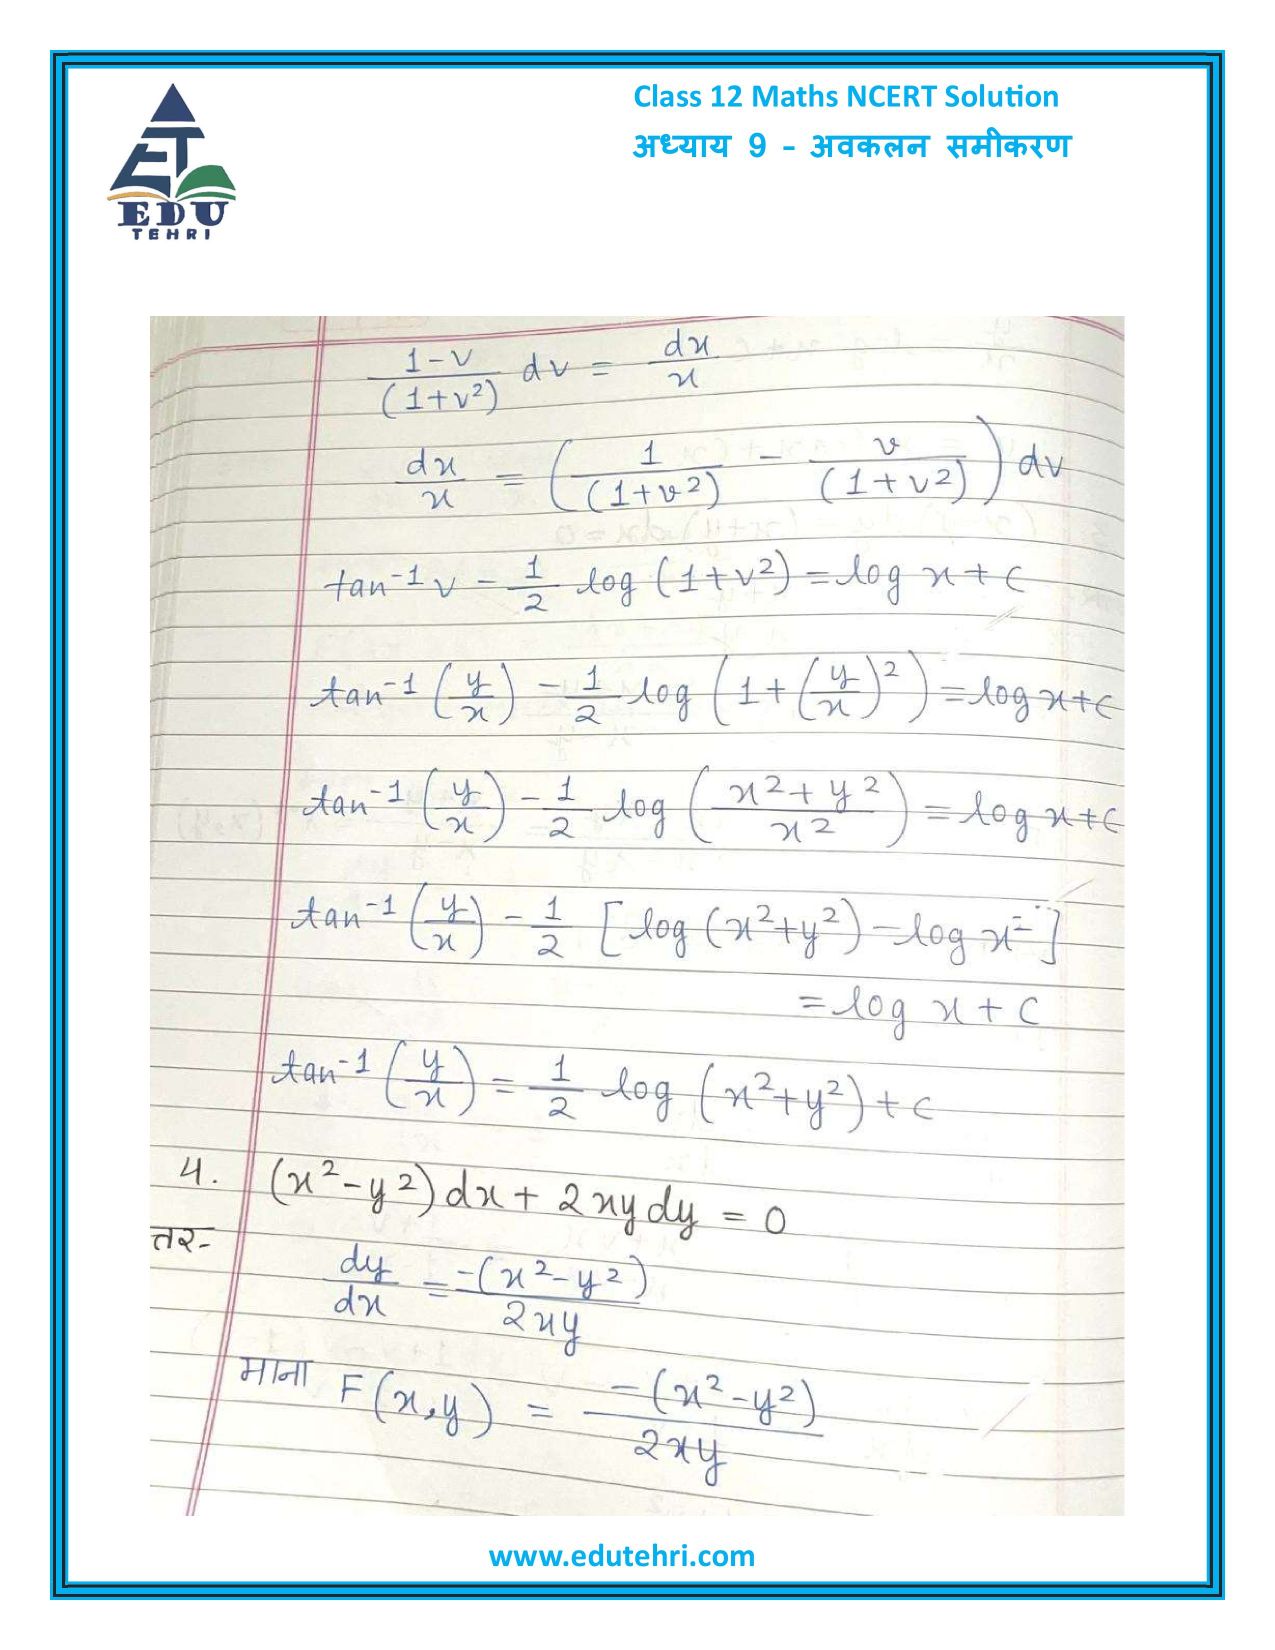 Class 12 Maths NCERT Solution
अध्याय 9 - अवकलन समीकरण
EDU
TEHRI
(1-v)/(1+v²) dv = dx/x
dx/x = (1/(1+v²) - v/(1+v²)) dv
tan⁻¹ v - 1/2 log (1+v²) = log x + c
tan⁻¹ (y/x) - 1/2 log (1+(y/x)²) = log x + c
tan⁻¹ (y/x) - 1/2 log ((x²+y²)/x²) = log x + c
tan⁻¹ (y/x) - 1/2 [log (x²+y²) - log x²]
= log x + c
tan⁻¹ (y/x) = 1/2 log (x²+y²) + c
4. (x²-y²) dx + 2xy dy = 0
तर-
dy/dx = -(x²-y²)/2xy
माना F(x,y) = -(x²-y²)/2xy
www.edutehri.com